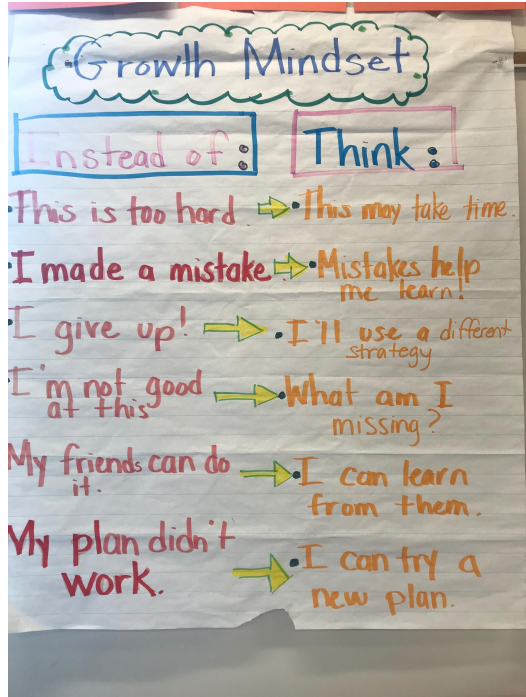 Growth Mindset
Instead of: Think:
This is too hard • This may take time.
• I made a mistake. • Mistakes help
me learn!
I give up! • I'll use a different
strategy
I'm not good • What am I
at this missing?
My friends can do • I can learn
it. from them.
My plan didn't • I can try a
work. new plan.